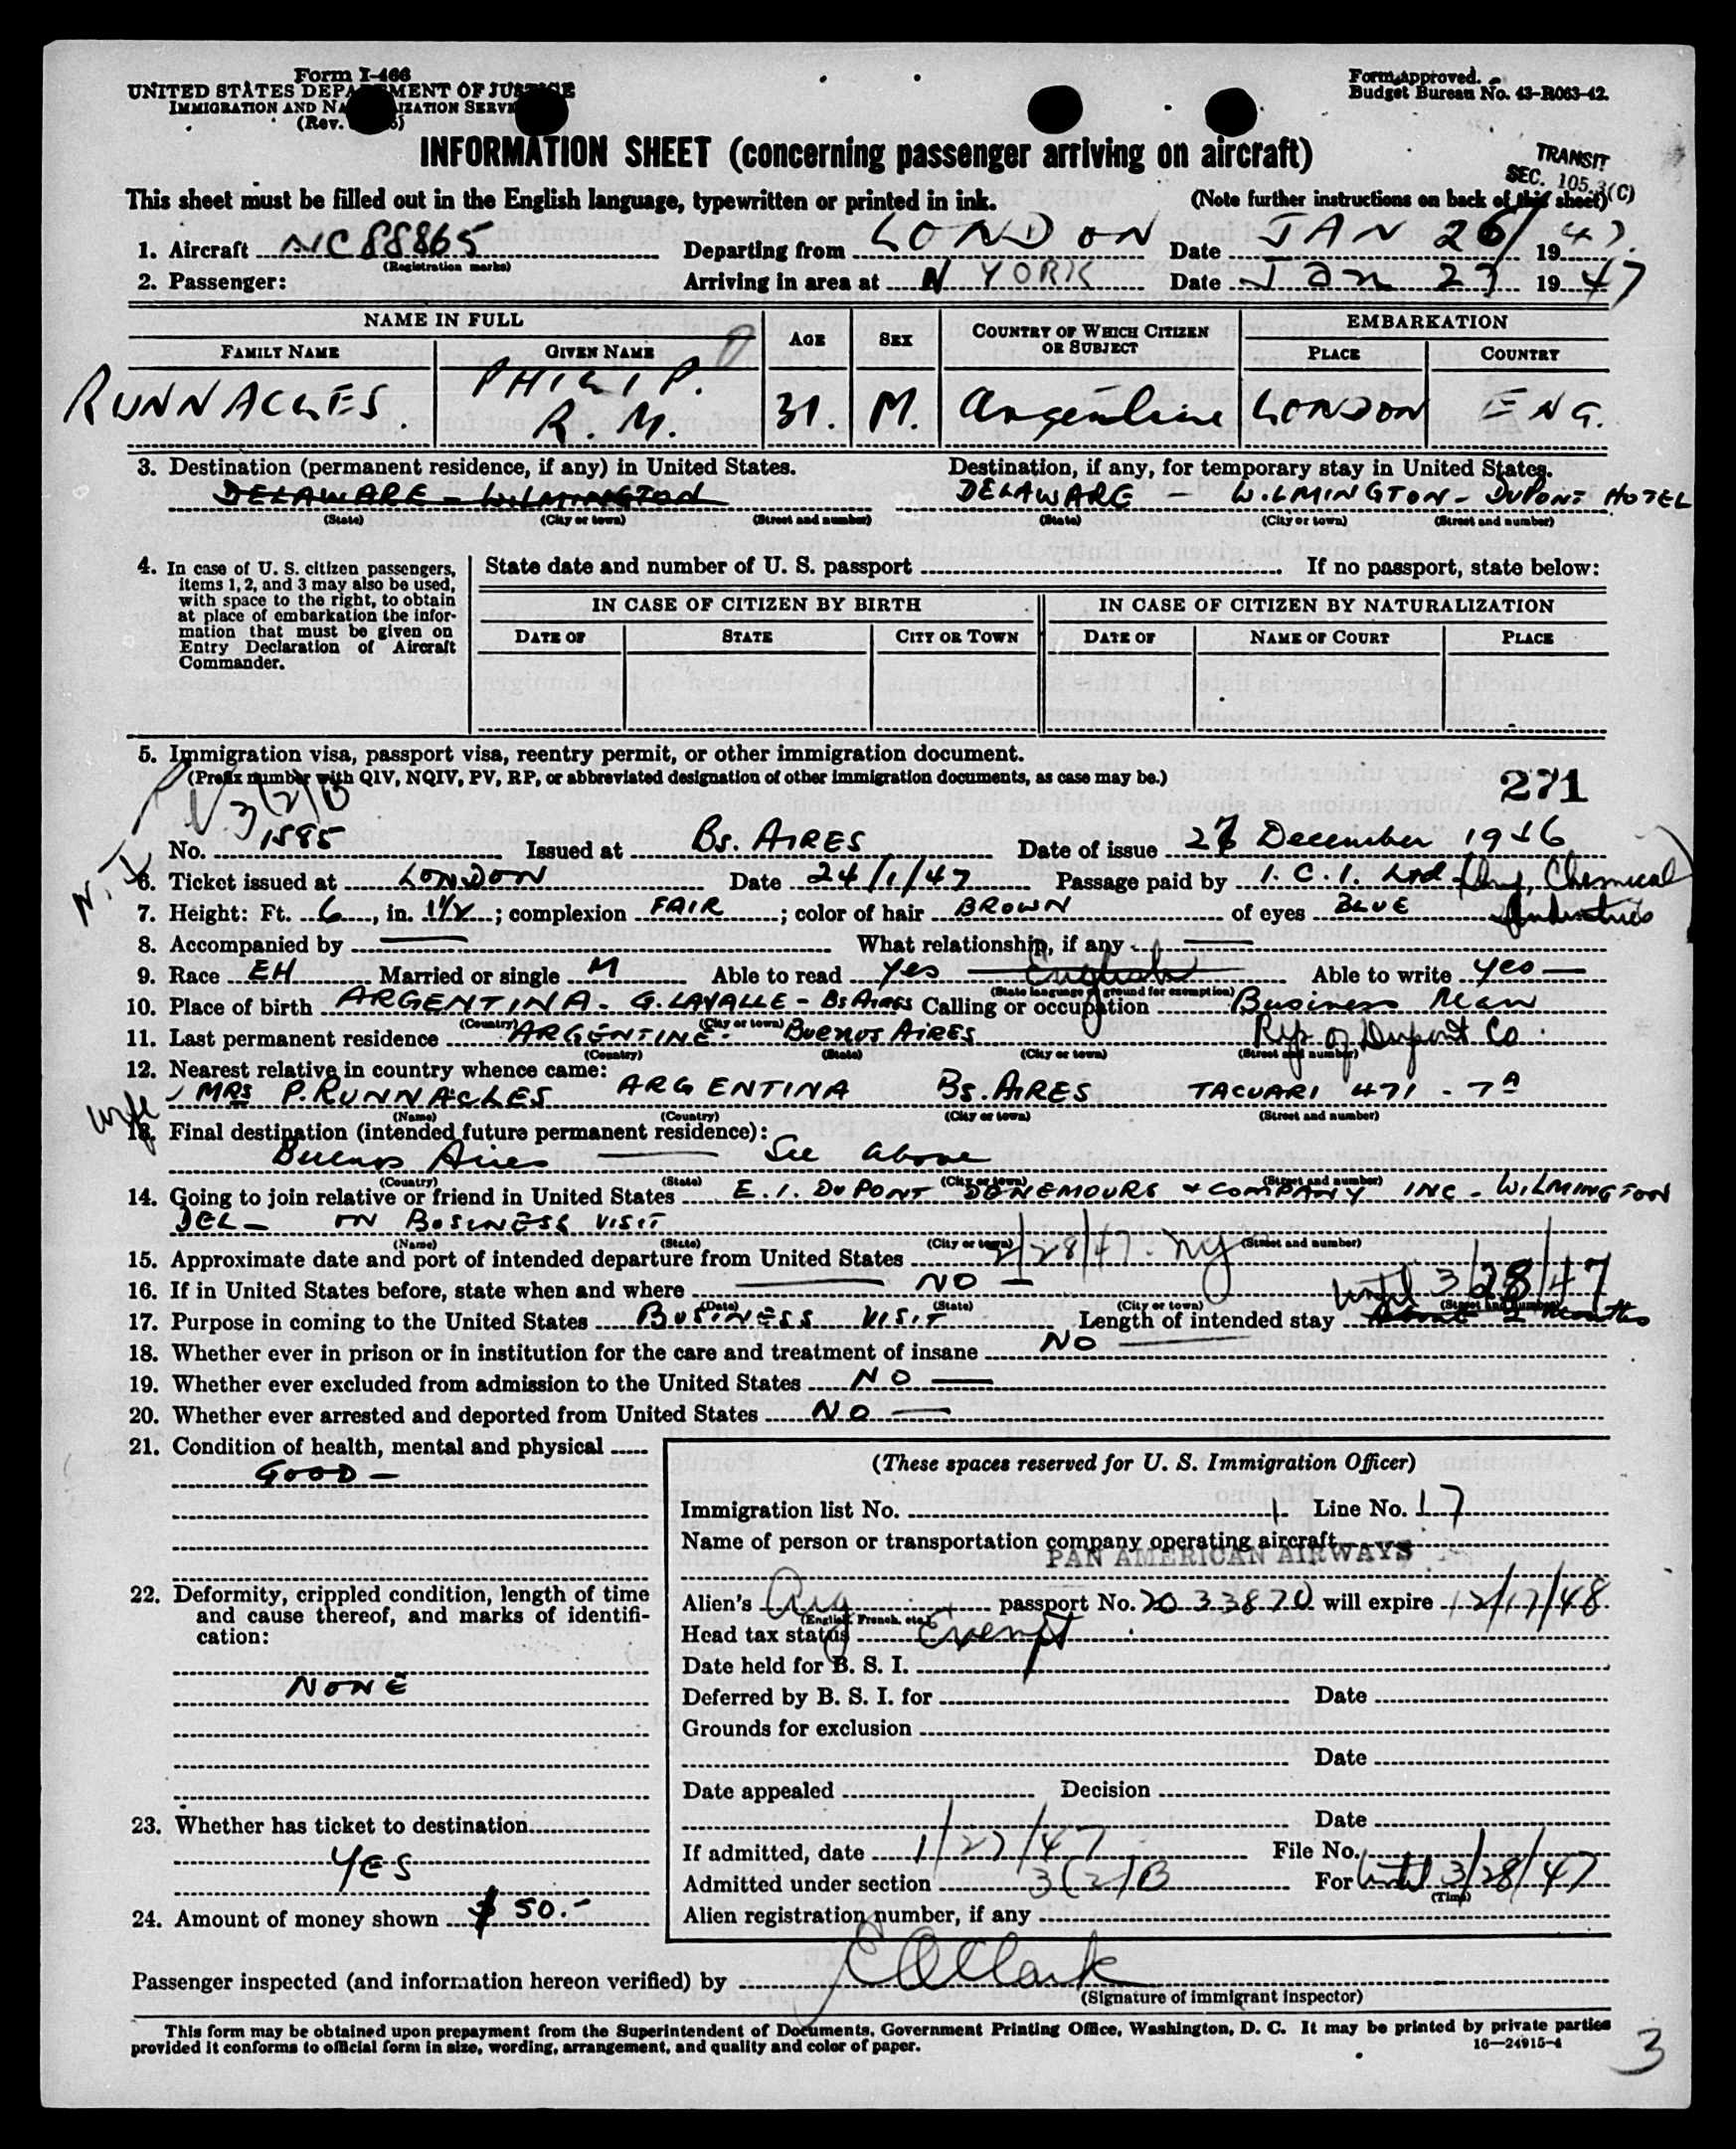 Form I-466
UNITED STATES DEPARTMENT OF JUSTICE
IMMIGRATION AND NATURALIZATION SERVICE
(Rev.
Form Approved.
Budget Bureau No. 43-R063-42.
INFORMATION SHEET (concerning passenger arriving on aircraft)
TRANSIT
SEC. 105.3(C)
This sheet must be filled out in the English language, typewritten or printed in ink. (Note further instructions on back of this sheet)
1. Aircraft NC88865 Departing from LONDON Date JAN 26 1947.
(Registration marks)
2. Passenger: Arriving in area at N YORK Date Jan 27 1947
NAME IN FULL AGE SEX COUNTRY OF WHICH CITIZEN OR SUBJECT EMBARKATION
FAMILY NAME GIVEN NAME PLACE COUNTRY
RUNNACLES PHILIP. R. M. 31. M. Argentine LONDON ENG.
3. Destination (permanent residence, if any) in United States. Destination, if any, for temporary stay in United States.
DELAWARE - WILMINGTON DELAWARE - WILMINGTON - DUPONT HOTEL
(State) (City or town) (Street and number) (State) (City or town) (Street and number)
4. In case of U. S. citizen passengers, items 1, 2, and 3 may also be used, with space to the right, to obtain at place of embarkation the information that must be given on Entry Declaration of Aircraft Commander.
State date and number of U. S. passport If no passport, state below:
IN CASE OF CITIZEN BY BIRTH IN CASE OF CITIZEN BY NATURALIZATION
DATE OF STATE CITY OR TOWN DATE OF NAME OF COURT PLACE
5. Immigration visa, passport visa, reentry permit, or other immigration document.
(Prefix number with QIV, NQIV, PV, RP, or abbreviated designation of other immigration documents, as case may be.)
271
3(2)B
No. 1585 Issued at Bs. AIRES Date of issue 27 December 1946
6. Ticket issued at LONDON Date 24/1/47 Passage paid by I. C. I. Ltd (Imp. Chemical Industries)
7. Height: Ft. 6, in. 1½; complexion FAIR; color of hair BROWN of eyes BLUE
8. Accompanied by — What relationship, if any —
9. Race EH Married or single M Able to read Yes — English Able to write Yes —
(State language or ground for exemption)
10. Place of birth ARGENTINA - G. LAVALLE - Bs AIRES Calling or occupation Business Man
(Country) (City or town)
11. Last permanent residence ARGENTINE - BUENOS AIRES Rep of Dupont Co.
(Country) (State) (City or town) (Street and number)
12. Nearest relative in country whence came:
wife MRS P. RUNNACLES ARGENTINA BS. AIRES TACUARI 471 - 7A
(Name) (Country) (City or town) (Street and number)
13. Final destination (intended future permanent residence):
Buenos Aires — See above
(Country) (State) (City or town) (Street and number)
14. Going to join relative or friend in United States E. I. DU PONT DENEMOURS & COMPANY INC - WILMINGTON
DEL - ON BUSINESS VISIT
(Name) (State) (City or town) (Street and number)
15. Approximate date and port of intended departure from United States 2/28/47 - NY
16. If in United States before, state when and where — NO — until 3/28/47
(Date) (State) (City or town) (Street and number)
17. Purpose in coming to the United States BUSINESS VISIT Length of intended stay About 2 months
18. Whether ever in prison or in institution for the care and treatment of insane NO —
19. Whether ever excluded from admission to the United States NO —
20. Whether ever arrested and deported from United States NO —
21. Condition of health, mental and physical
GOOD —
22. Deformity, crippled condition, length of time and cause thereof, and marks of identification:
NONE
23. Whether has ticket to destination
YES
24. Amount of money shown $ 50.-
(These spaces reserved for U. S. Immigration Officer)
Immigration list No. 1 Line No. 17
Name of person or transportation company operating aircraft
PAN AMERICAN AIRWAYS
Alien's Arg passport No. 2033870 will expire 12/17/48
(English, French, etc.)
Head tax status Exempt
Date held for B. S. I.
Deferred by B. S. I. for Date
Grounds for exclusion
Date
Date appealed Decision
Date
If admitted, date 1/27/47 File No.
Admitted under section 3(2)B For until 3/28/47
(Time)
Alien registration number, if any
Passenger inspected (and information hereon verified) by C A Clark
(Signature of immigrant inspector)
This form may be obtained upon prepayment from the Superintendent of Documents, Government Printing Office, Washington, D. C. It may be printed by private parties
provided it conforms to official form in size, wording, arrangement, and quality and color of paper. 16—24915-4
3